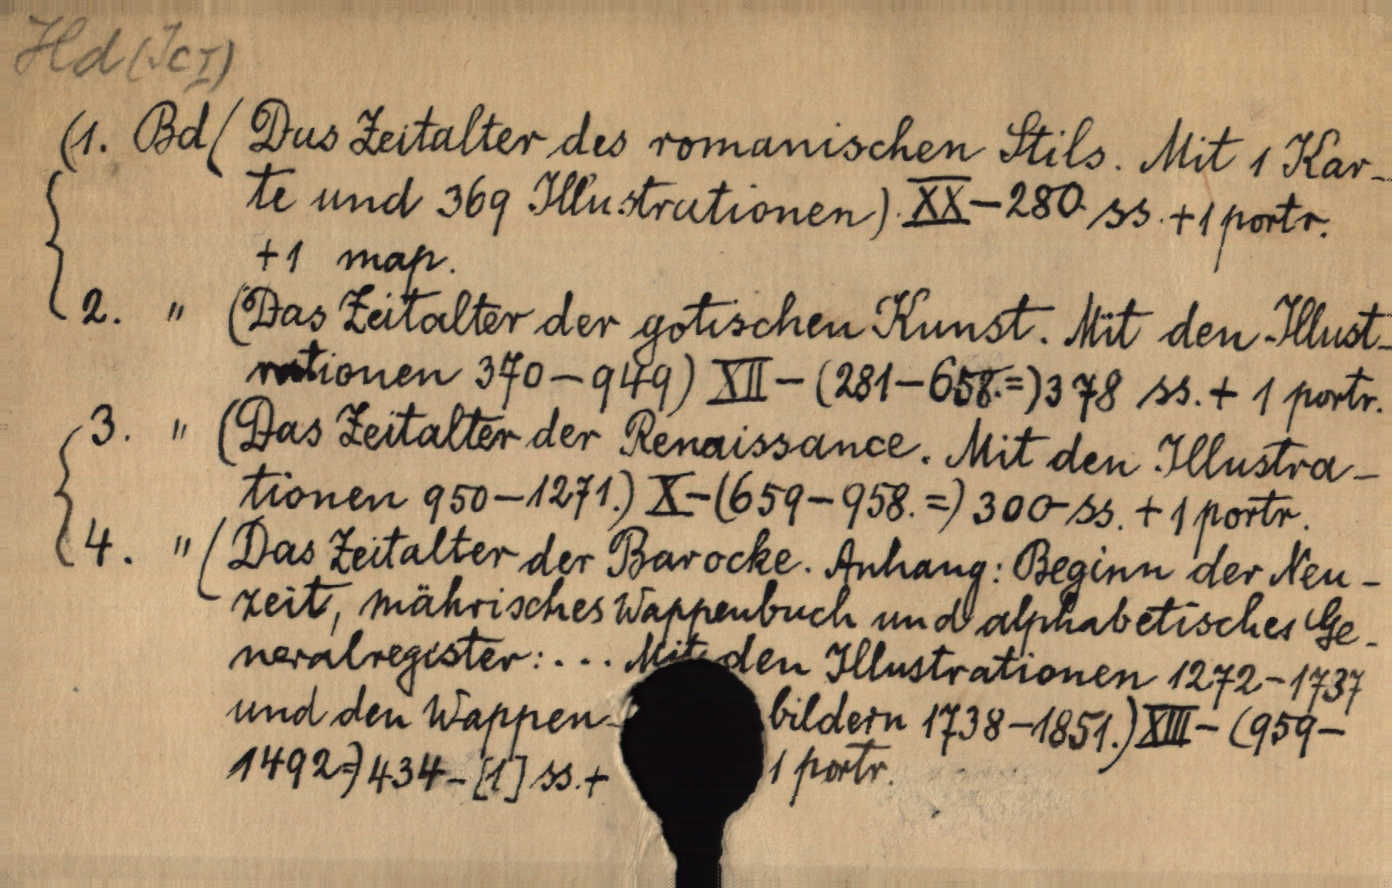 Hd (Jc I)
(1. Bd ( Das Zeitalter des romanischen Stils. Mit 1 Kar-
te und 369 Illustrationen). XX-280 ss. +1 portr.
+1 map.
2. " (Das Zeitalter der gotischen Kunst. Mit den Illust-
rationen 370-949) XII-(281-658.=)378 ss. + 1 portr.
3. " (Das Zeitalter der Renaissance. Mit den Illustra-
tionen 950-1271.) X-(659-958.=) 300 ss. + 1 portr.
4. " (Das Zeitalter der Barocke. Anhang: Beginn der Neu-
zeit, mährisches Wappenbuch und alphabetisches Ge-
neralregister:... Mit den Illustrationen 1272-1737
und den Wappen- bildern 1738-1851.) XIII-(959-
1492=) 434-[1] ss. + 1 portr.